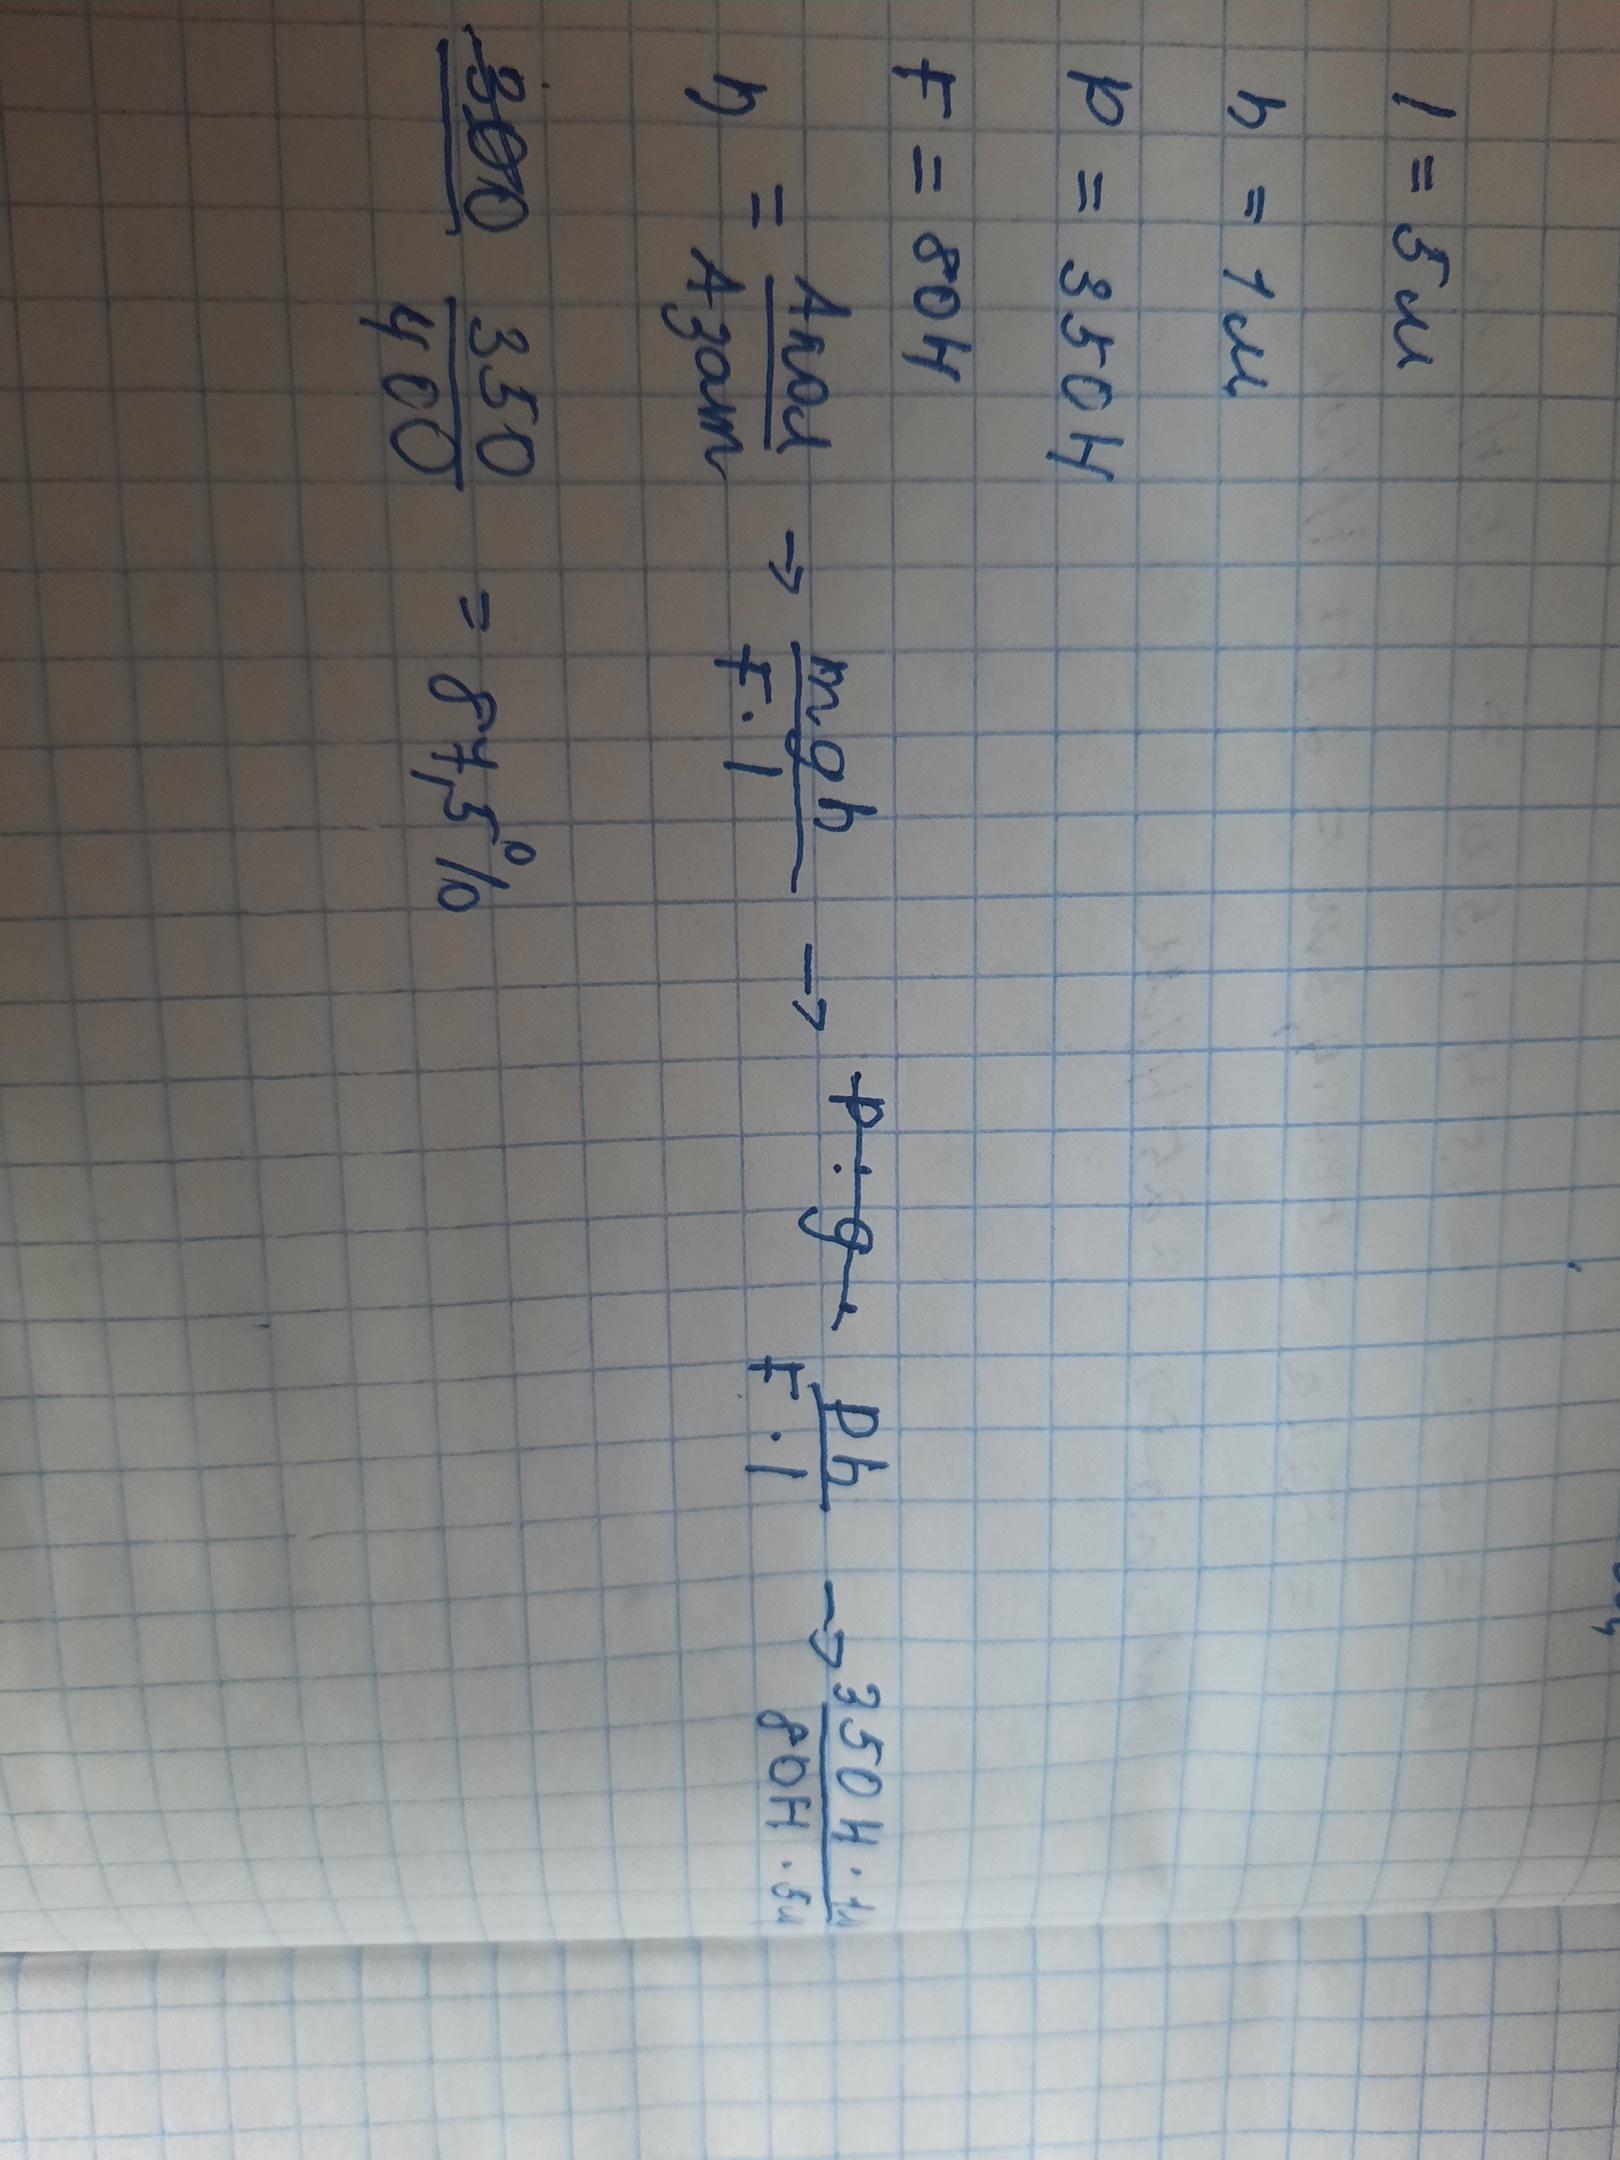 l = 5м
h = 1м
p = 350Н
F = 80Н
η = Aпол / Aзат → mgh / F·l → p·g ph / F·l → 350Н·1м / 80Н·5м
300 350 / 400 = 87,5%